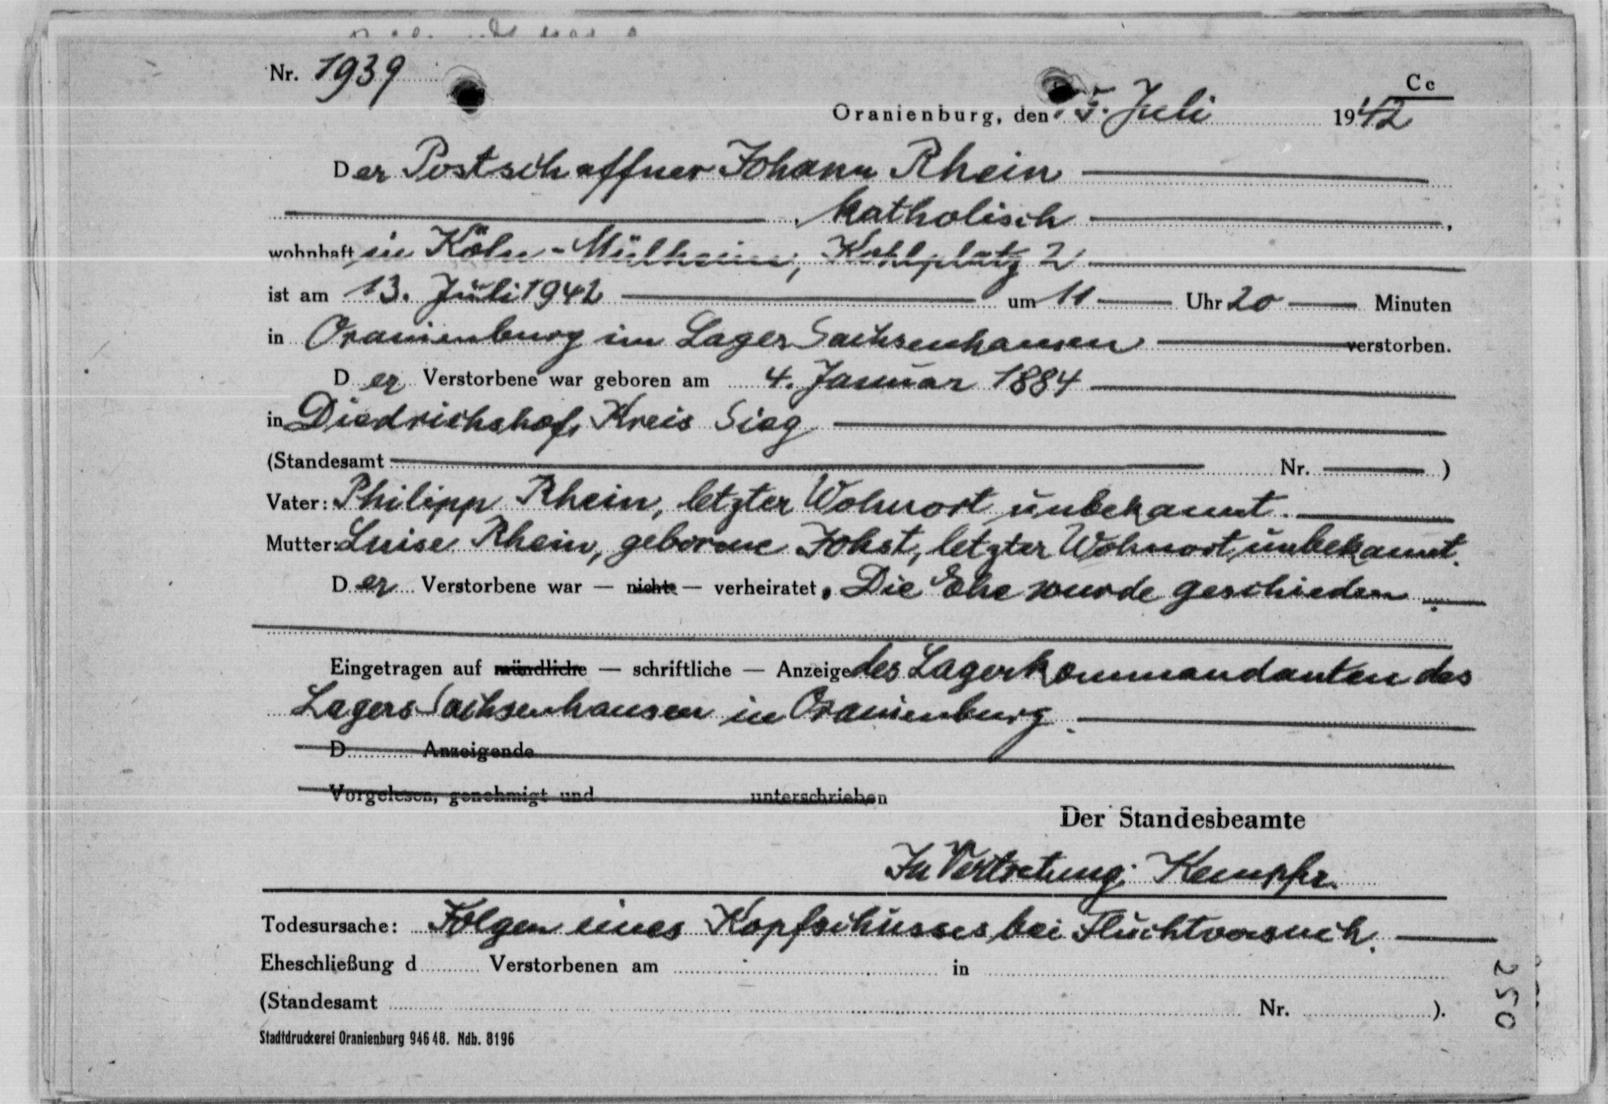 Nr. 1939
Cc
Oranienburg, den 15. Juli 1942
Der Postschaffner Johann Rhein
katholisch,
wohnhaft in Köln-Mülheim, Kohlplatz 2
ist am 13. Juli 1942 um 11 Uhr 20 Minuten
in Oranienburg im Lager Sachsenhausen verstorben.
Der Verstorbene war geboren am 4. Januar 1884
in Diedrichshof, Kreis Sieg
(Standesamt Nr. )
Vater: Philipp Rhein, letzter Wohnort unbekannt.
Mutter: Luise Rhein, geborene Johst, letzter Wohnort unbekannt.
Der Verstorbene war — nicht — verheiratet. Die Ehe wurde geschieden.
Eingetragen auf mündliche — schriftliche — Anzeige des Lagerkommandanten des
Lagers Sachsenhausen in Oranienburg.
D Anzeigende
Vorgelesen, genehmigt und unterschrieben
Der Standesbeamte
In Vertretung: Kempfer
Todesursache: Folgen eines Kopfschusses bei Fluchtversuch.
Eheschließung d Verstorbenen am in
(Standesamt Nr. ).
Stadtdruckerei Oranienburg 946 48. Ndb. 8196
250